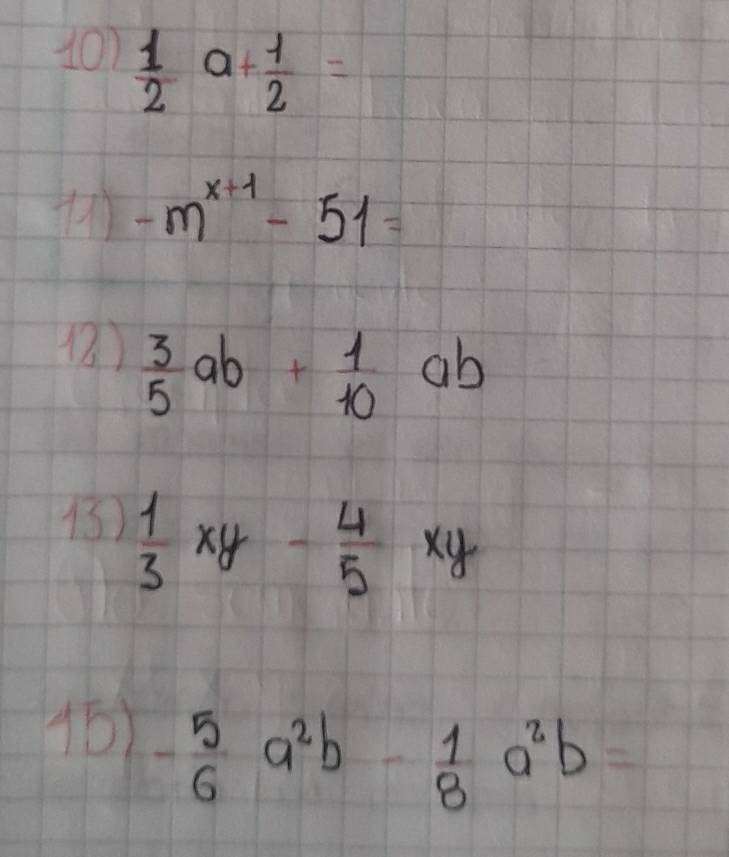 10) 1/2 a + 1/2 =
11) - m^(x+1) - 51 =
12) 3/5 ab + 1/10 ab
13) 1/3 xy - 4/5 xy
15) - 5/6 a²b - 1/8 a²b =